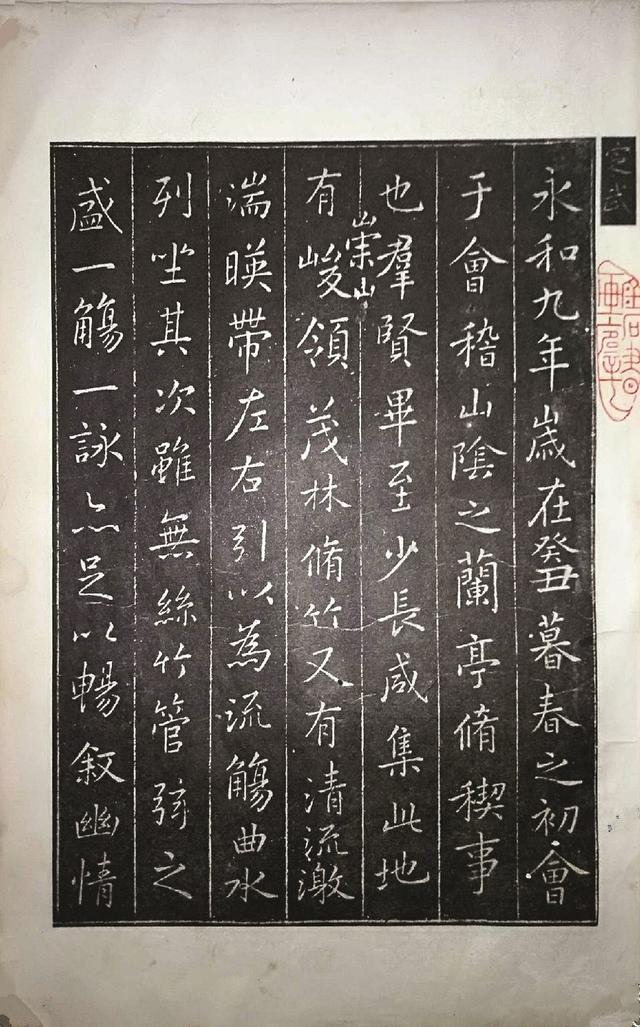 定武
永和九年歲在癸丑暮春之初會
于會稽山陰之蘭亭脩稧事
也羣賢畢至少長咸集此地
有崇山峻領茂林脩竹又有清流激
湍暎帶左右引以為流觴曲水
列坐其次雖無絲竹管弦之
盛一觴一詠亦足以暢叙幽情